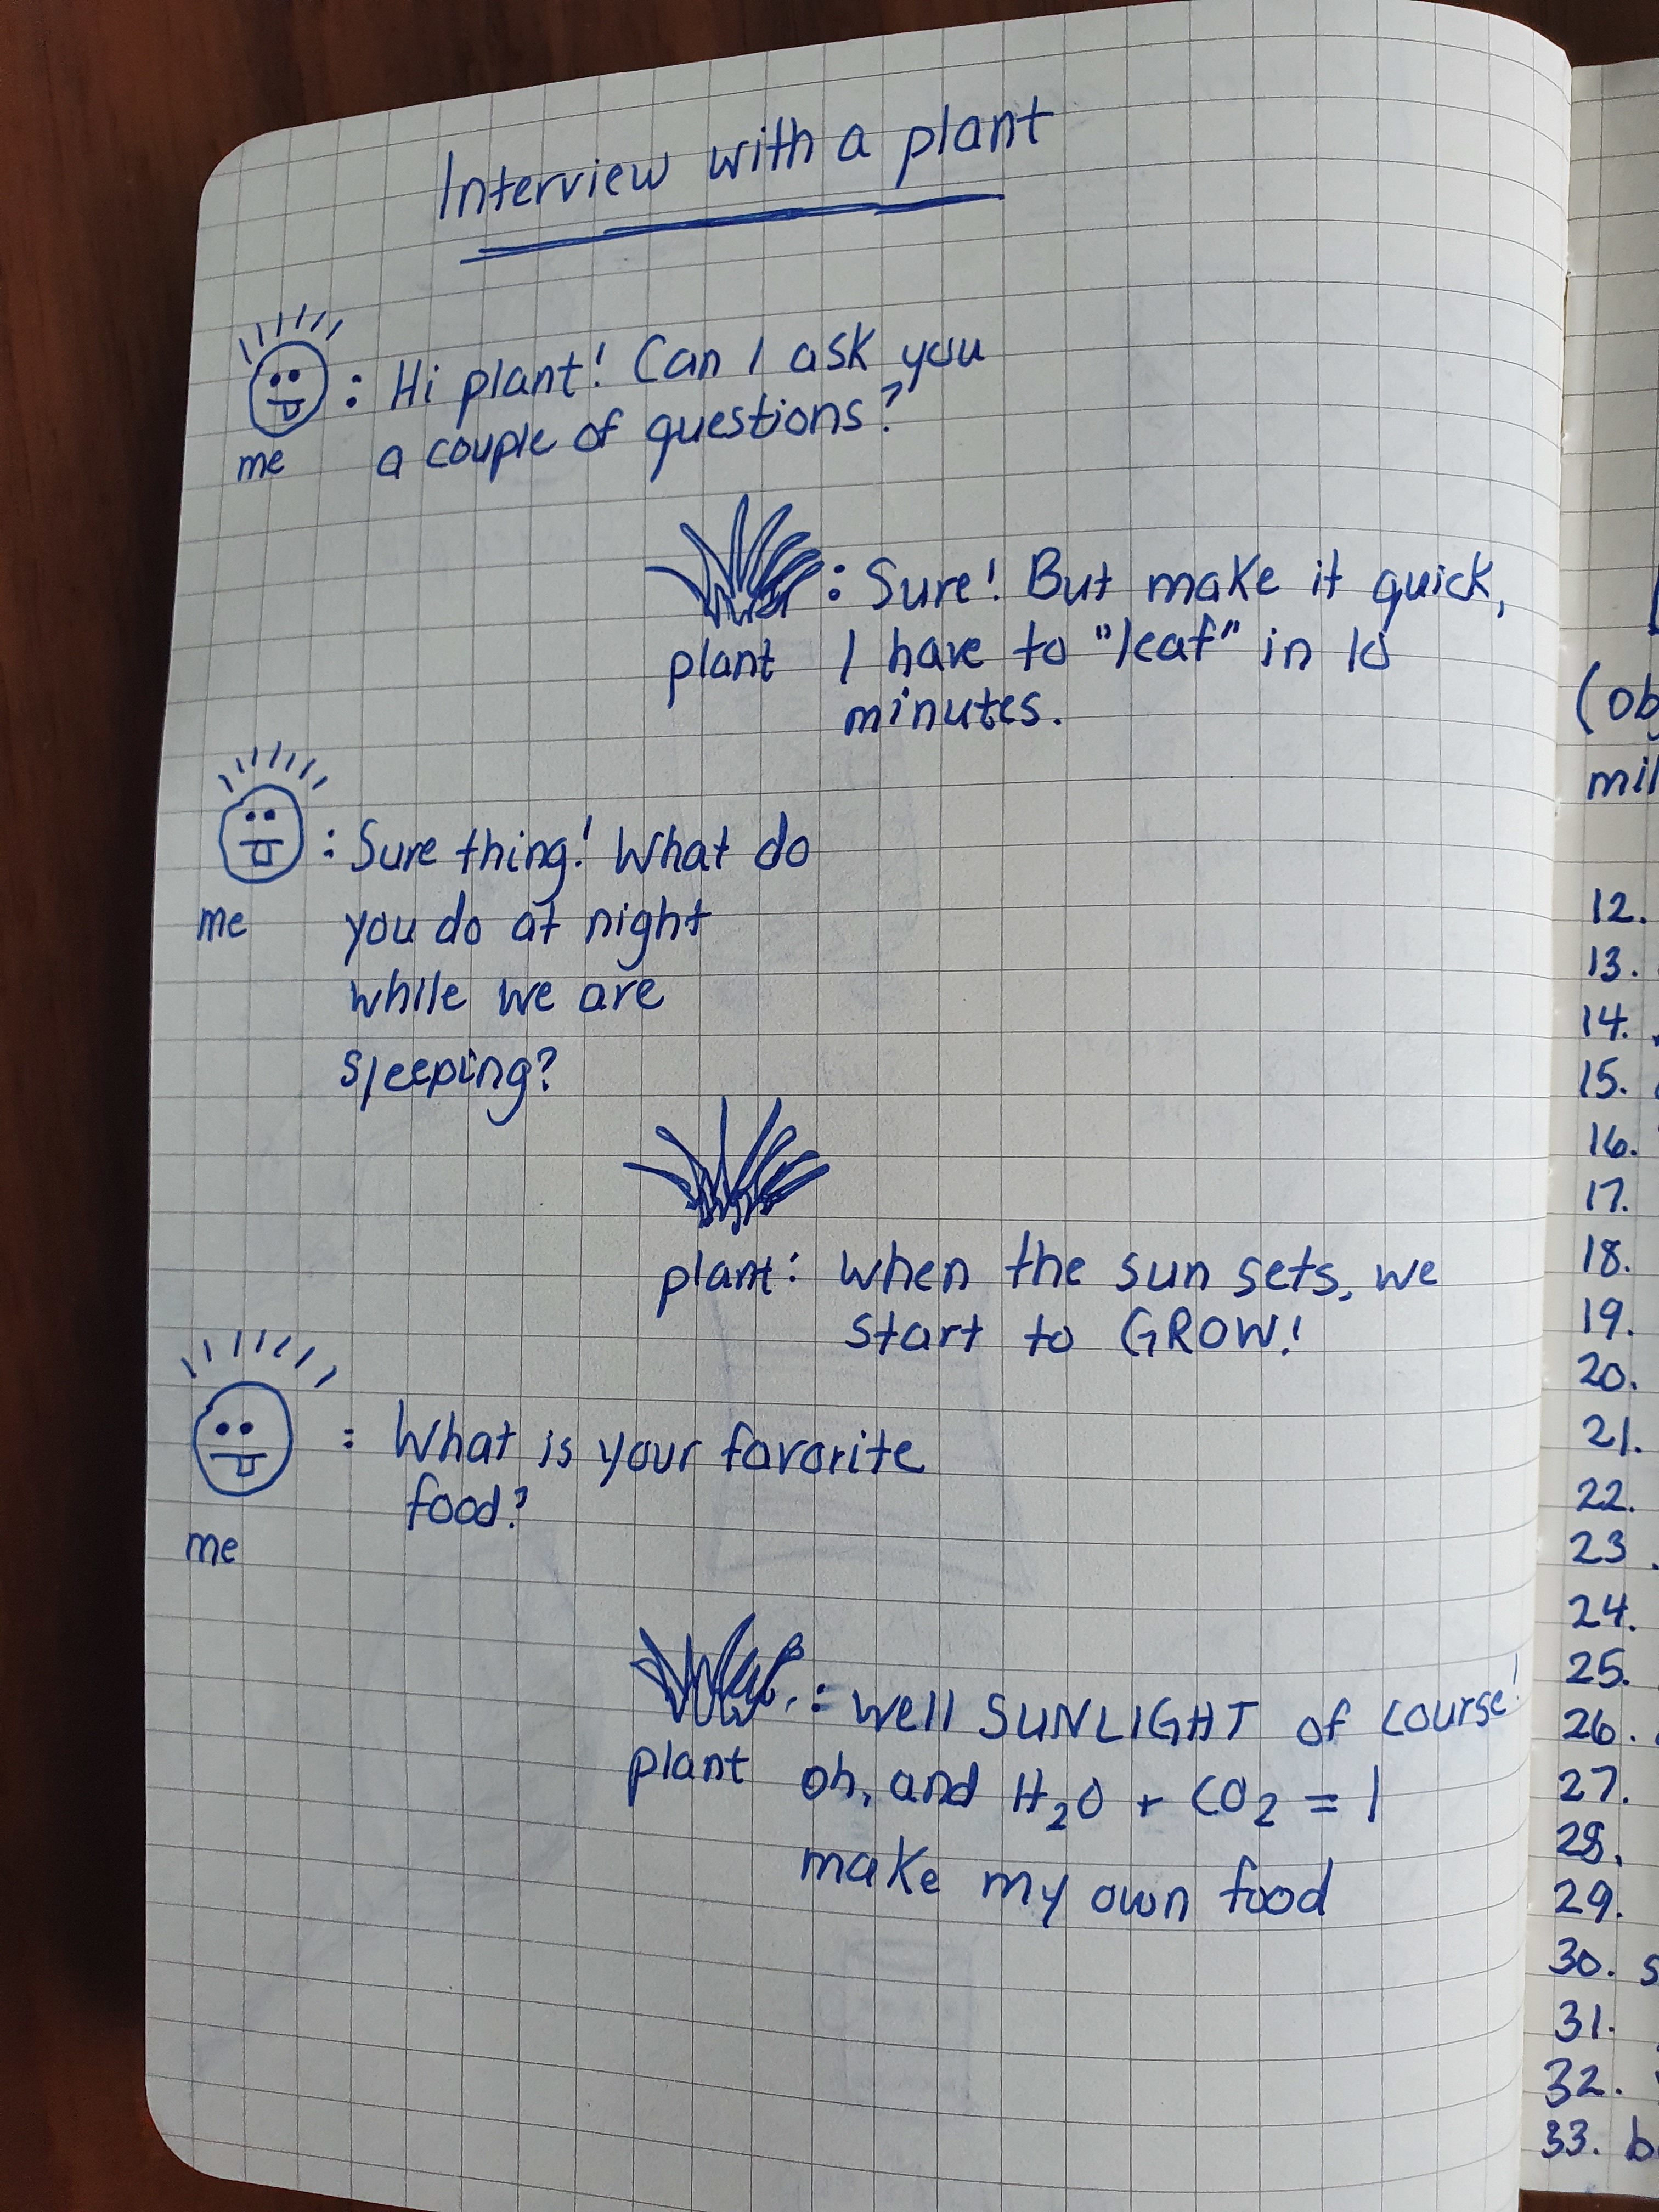 Interview with a plant
: Hi plant! Can I ask you
me a couple of questions?
: Sure! But make it quick,
plant I have to "leaf" in 10
minutes.
: Sure thing! What do
me you do at night
while we are
sleeping?
plant: when the sun sets, we
start to GROW!
: What is your favorite
food?
me
: well SUNLIGHT of course!
plant oh, and H₂O + CO₂ = I
make my own food
(ob
mil
12.
13.
14.
15.
16.
17.
18.
19.
20.
21.
22.
23.
24.
25.
26.
27.
28.
29.
30. s
31.
32.
33. b